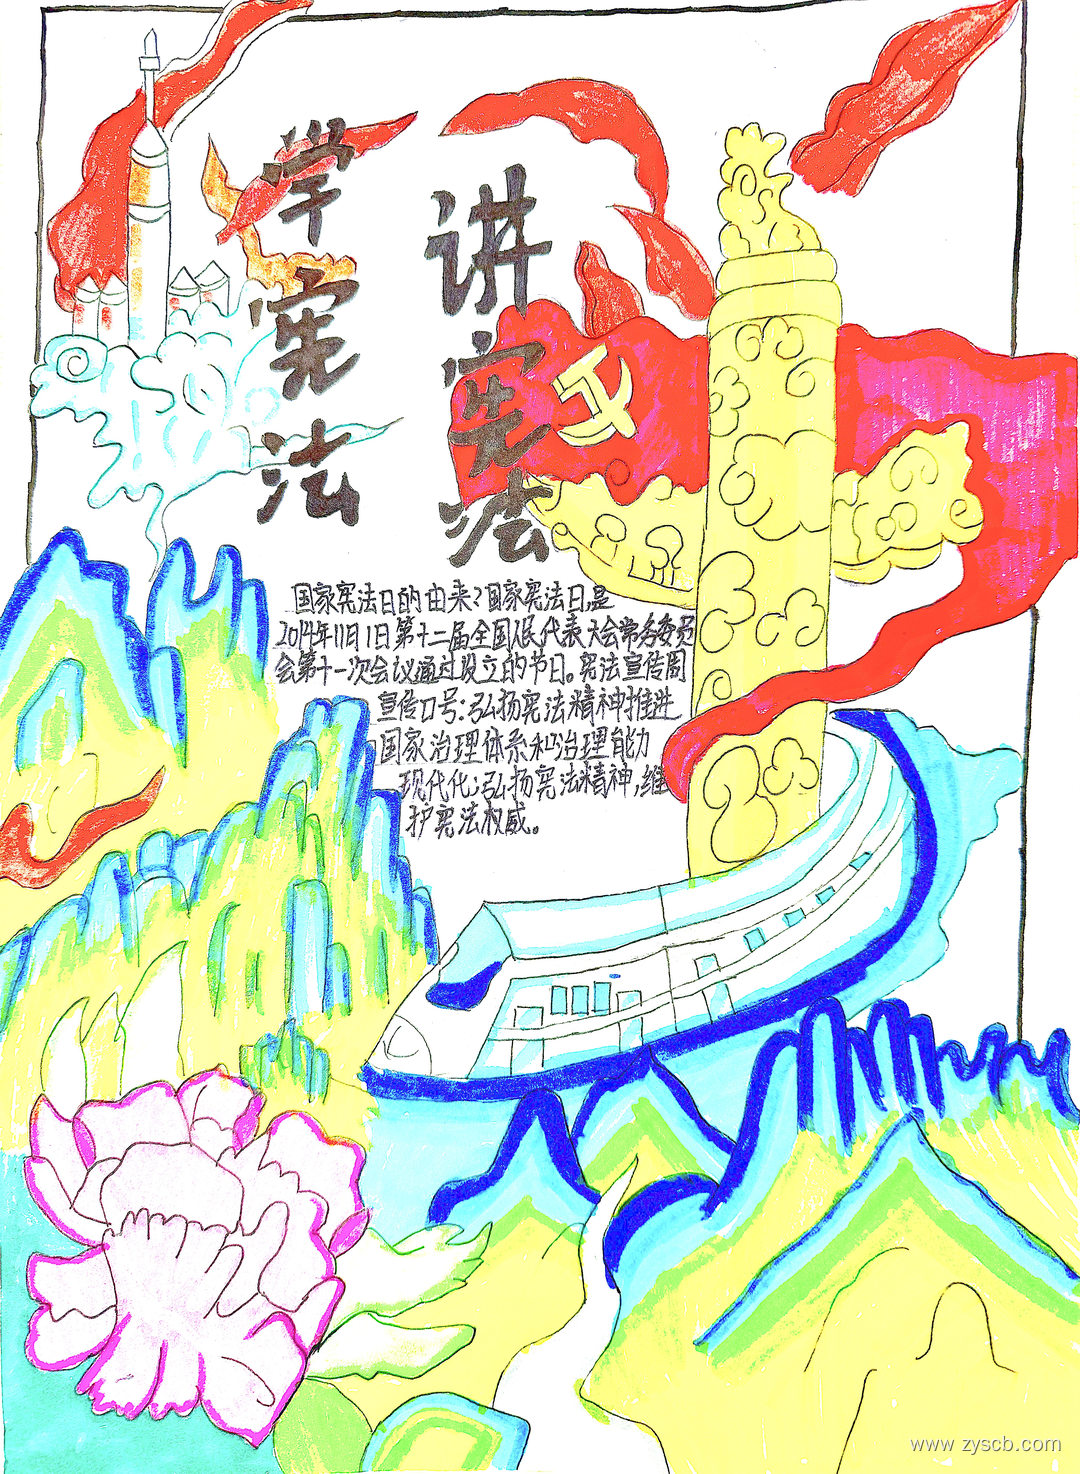 学宪法
讲宪法
国家宪法日的由来?国家宪法日,是
2014年11月1日第十二届全国人民代表大会常务委员
会第十一次会议通过设立的节日。宪法宣传周
宣传口号:弘扬宪法精神推进
国家治理体系和治理能力
现代化;弘扬宪法精神,维
护宪法权威。
www.zyscb.com